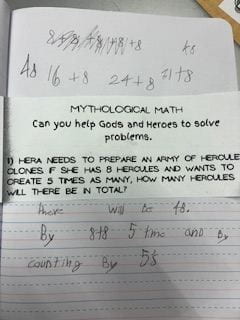 +8
48 16 +8 24+8
MYTHOLOGICAL MATH
Can you help Gods and Heroes to solve
problems.
1) HERA NEEDS TO PREPARE AN ARMY OF HERCULE
CLONES. IF SHE HAS 8 HERCULES AND WANTS TO
CREATE 5 TIMES AS MANY, HOW MANY HERCULES
WILL THERE BE IN TOTAL?
there will be 48.
By 8+8 5 time and By
counting By 5's